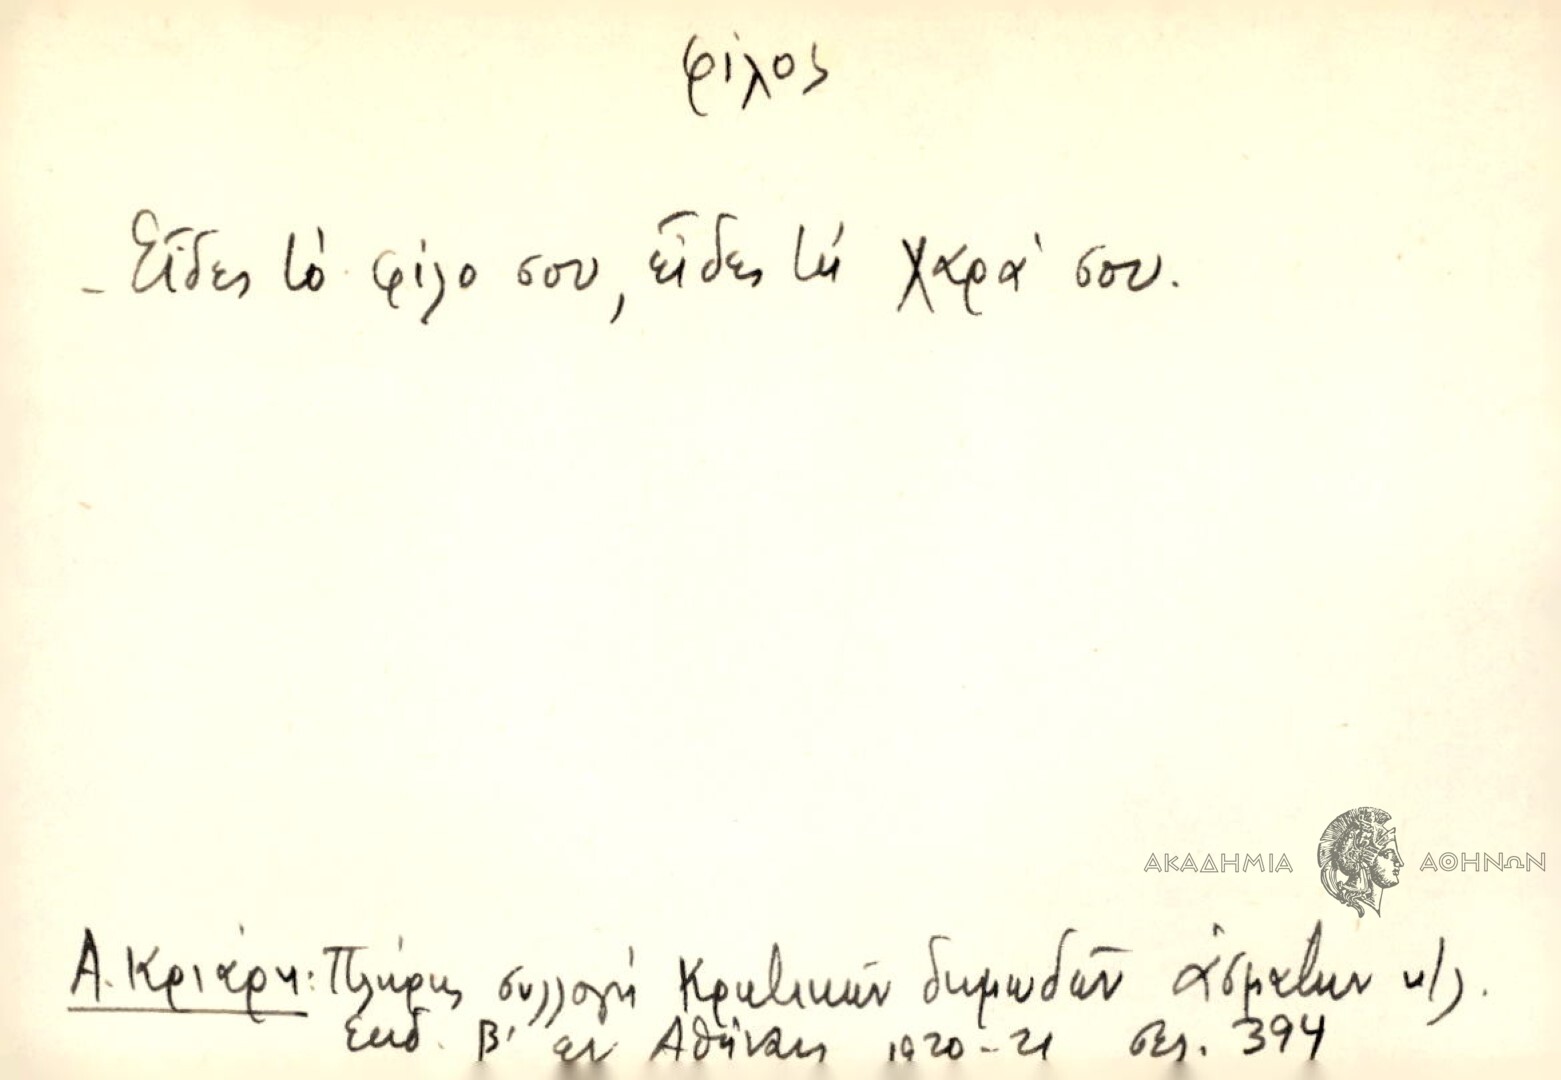 φίλος
- Εἶδες τὸ φίλο σου, εἶδες τή χαρά σου.
ΑΚΑΔΗΜΙΑ ΑΘΗΝΩΝ
Α. Κριάρη: Πλήρης συλλογή Κρητικῶν δημωδῶν ἀσμάτων κ/λ.
Ἐκδ. Β' εν Αθήναις 1920-21 σελ. 394